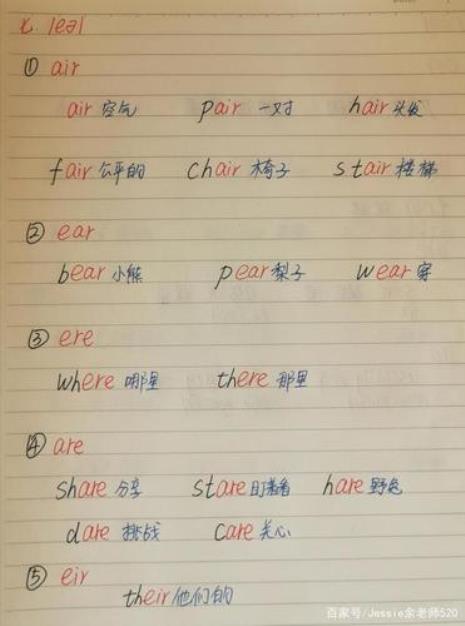 ① air
air 空气 pair 一对 hair 头发
fair 公平的 chair 椅子 stair 楼梯
② ear
bear 小熊 pear 梨子 wear 穿
③ ere
where 哪里 there 那里
④ are
share 分享 stare 盯着看 hare 野兔
dare 挑战 care 关心
⑤ eir
their 他们的
百家号/Jessie余老师520